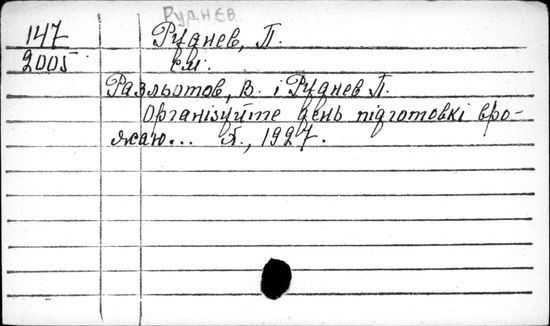 Руднєв
147
2005
Руднев, П.
см.
Разльотов, В. і Руднев П.
Организуйте день підготовкі вро-
жаю... Х., 1927.